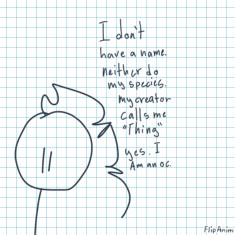 I don't
have a name.
neither do
my species.
my creator
calls me
"Thing"
yes. I
Am an oc.
FlipAnim